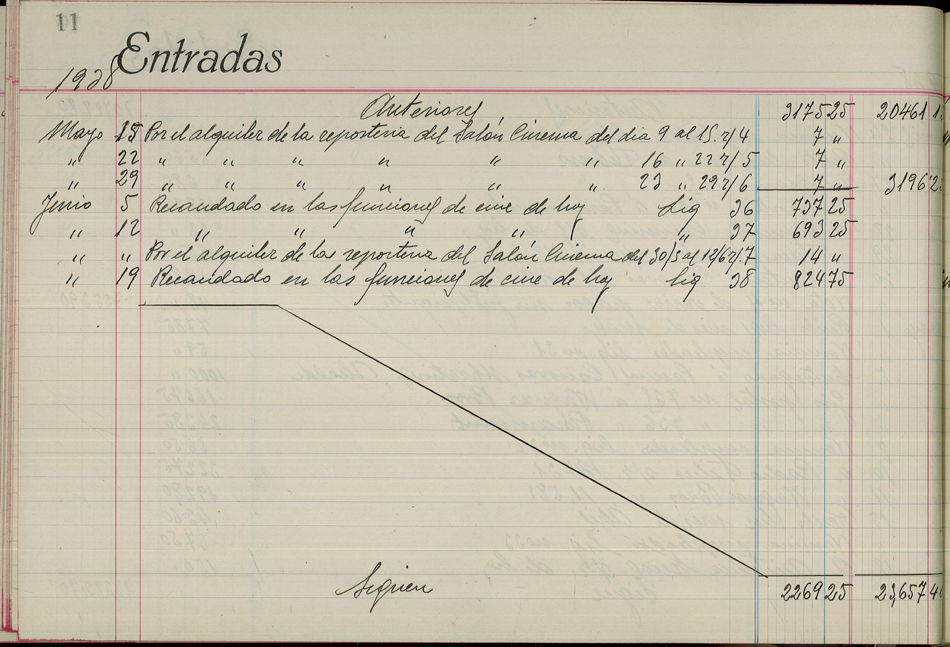 11
Entradas
1928
Anteriores 3175 25 20461 1
Mayo 15 Por el alquiler de la reposteria del Salón Cinema del dia 9 al 15. r/4 7 „
„ 22 „ „ „ „ „ „ 16 „ 22 r/5 7 „
„ 29 „ „ „ „ „ „ 23 „ 29 r/6 7 „ 3196 2
Junio 5 Recaudado en las funciones de cine de hoy liq 36 737 25
„ 12 „ „ „ „ „ 37 693 25
„ „ Por el alquiler de la reposteria del Salón Cinema del 30/5 al 12/6 r/7 14 „
„ 19 Recaudado en las funciones de cine de hoy liq 38 824 75
Siguen 2269 25 23,657 4